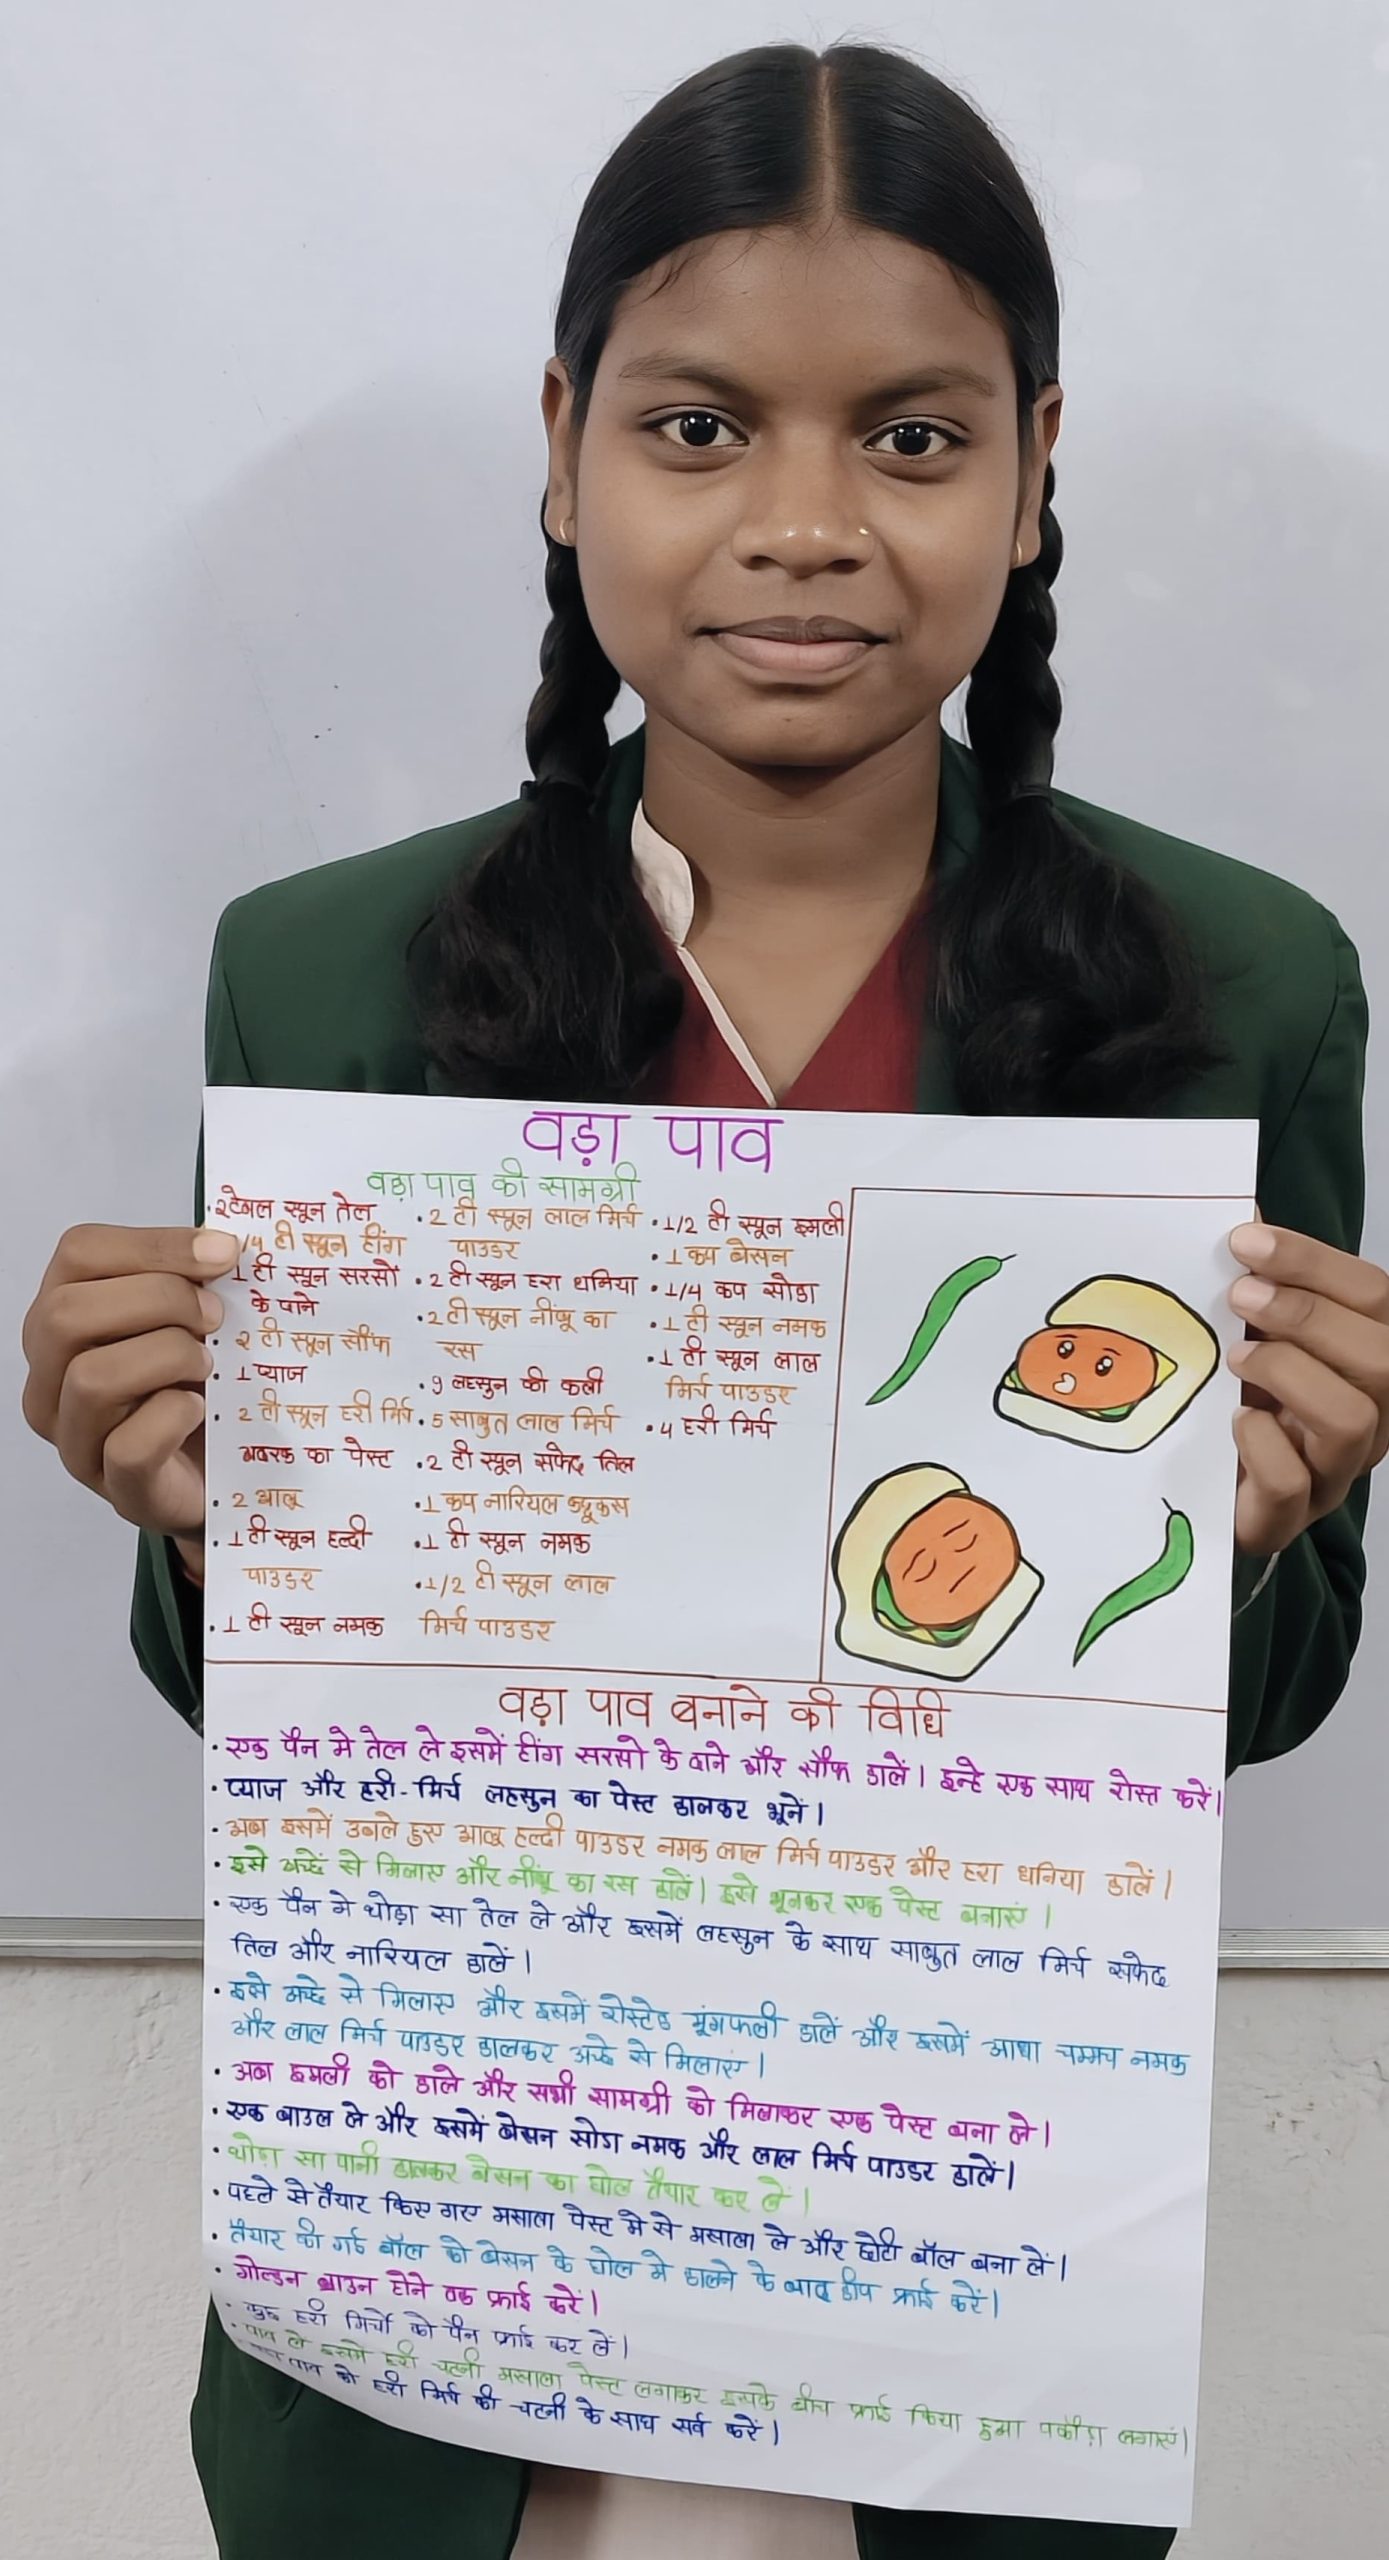 वड़ा पाव
वड़ा पाव की सामग्री
• 2 टेबल स्पून तेल
1/4 टी स्पून हींग
1 टी स्पून सरसों
के पाने
• 2 टी स्पून सौंफ
• 1 प्याज
• 2 टी स्पून हरी मिर्च
अदरक का पेस्ट
• 2 आलू
• 1 टी स्पून हल्दी
पाउडर
• 1 टी स्पून नमक
• 2 टी स्पून लाल मिर्च
पाउडर
• 2 टी स्पून हरा धनिया
• 2 टी स्पून नींबू का
रस
• 9 लहसुन की कली
• 5 साबुत लाल मिर्च
• 2 टी स्पून सफेद तिल
• 1 कप नारियल कद्दूकस
• 1 टी स्पून नमक
• 1/2 टी स्पून लाल
मिर्च पाउडर
• 1/2 टी स्पून इमली
• 1 कप बेसन
• 1/4 कप सोडा
• 1 टी स्पून नमक
• 1 टी स्पून लाल
मिर्च पाउडर
• 4 हरी मिर्च
वड़ा पाव बनाने की विधि
• एक पैन मे तेल ले इसमें हींग सरसो के दाने और सौंफ डालें। इन्हे एक साथ रोस्त करें।
• प्याज और हरी-मिर्च लहसुन का पेस्ट डालकर भूनें।
• अब इसमें उबले हुए आलू हल्दी पाउडर नमक लाल मिर्च पाउडर और हरा धनिया डालें।
• इसे अच्छें से मिलाए और नींबू का रस डालें। इसे भूनकर एक पेस्ट बनाएं।
• एक पैन मे थोड़ा सा तेल ले और इसमें लहसुन के साथ साबुत लाल मिर्च सफेद
तिल और नारियल डालें।
• इसे अच्छे से मिलाए और इसमें रोस्टेड मूंगफली डालें और इसमें आधा चम्मच नमक
और लाल मिर्च पाउडर डालकर अच्छे से मिलाएं।
• अब इमली को डाले और सभी सामग्री को मिलाकर एक पेस्ट बना ले।
• एक बाउल ले और इसमें बेसन सोडा नमक और लाल मिर्च पाउडर डालें।
• थोड़ा सा पानी डालकर बेसन का घोल तैयार कर लें।
• पहले से तैयार किए गए मसाला पेस्ट मे से मसाला ले और छोटी बॉल बना लें।
• तैयार की गई बॉल को बेसन के घोल मे डालने के बाद डीप फ्राई करें।
• गोल्डन ब्राउन होने तक फ्राई करें।
• कुछ हरी मिर्चो को पैन फ्राई कर लें।
• पाव ले इसमे हरी चटनी मसाला पेस्ट लगाकर इसके बीच फ्राई किया हुआ पकौड़ा लगाएं।
पाव को हरी मिर्च की चटनी के साथ सर्व करें।